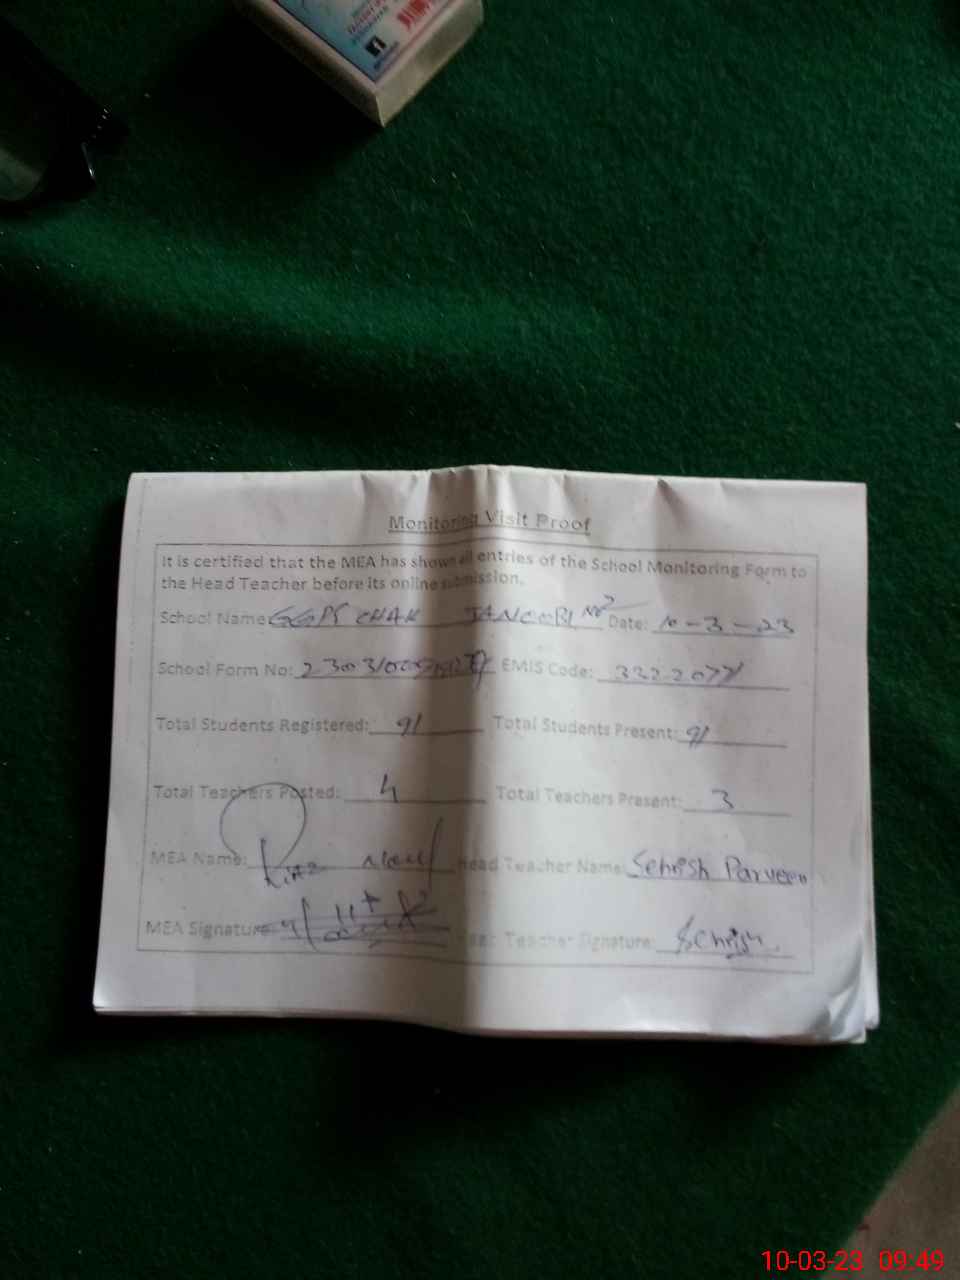 Monitoring Visit Proof
It is certified that the MEA has shown all entries of the School Monitoring Form to
the Head Teacher before its online submission.
School Name: GGPS CHAK JANOOBI No 2 Date: 10-3-23
School Form No: EMIS Code:
Total Students Registered: 91 Total Students Present: 91
Total Teachers Posted: 4 Total Teachers Present: 3
MEA Name: Head Teacher Name: Sehrish Parveen
MEA Signature: Head Teacher Signature: Sehrish
10-03-23 09:49